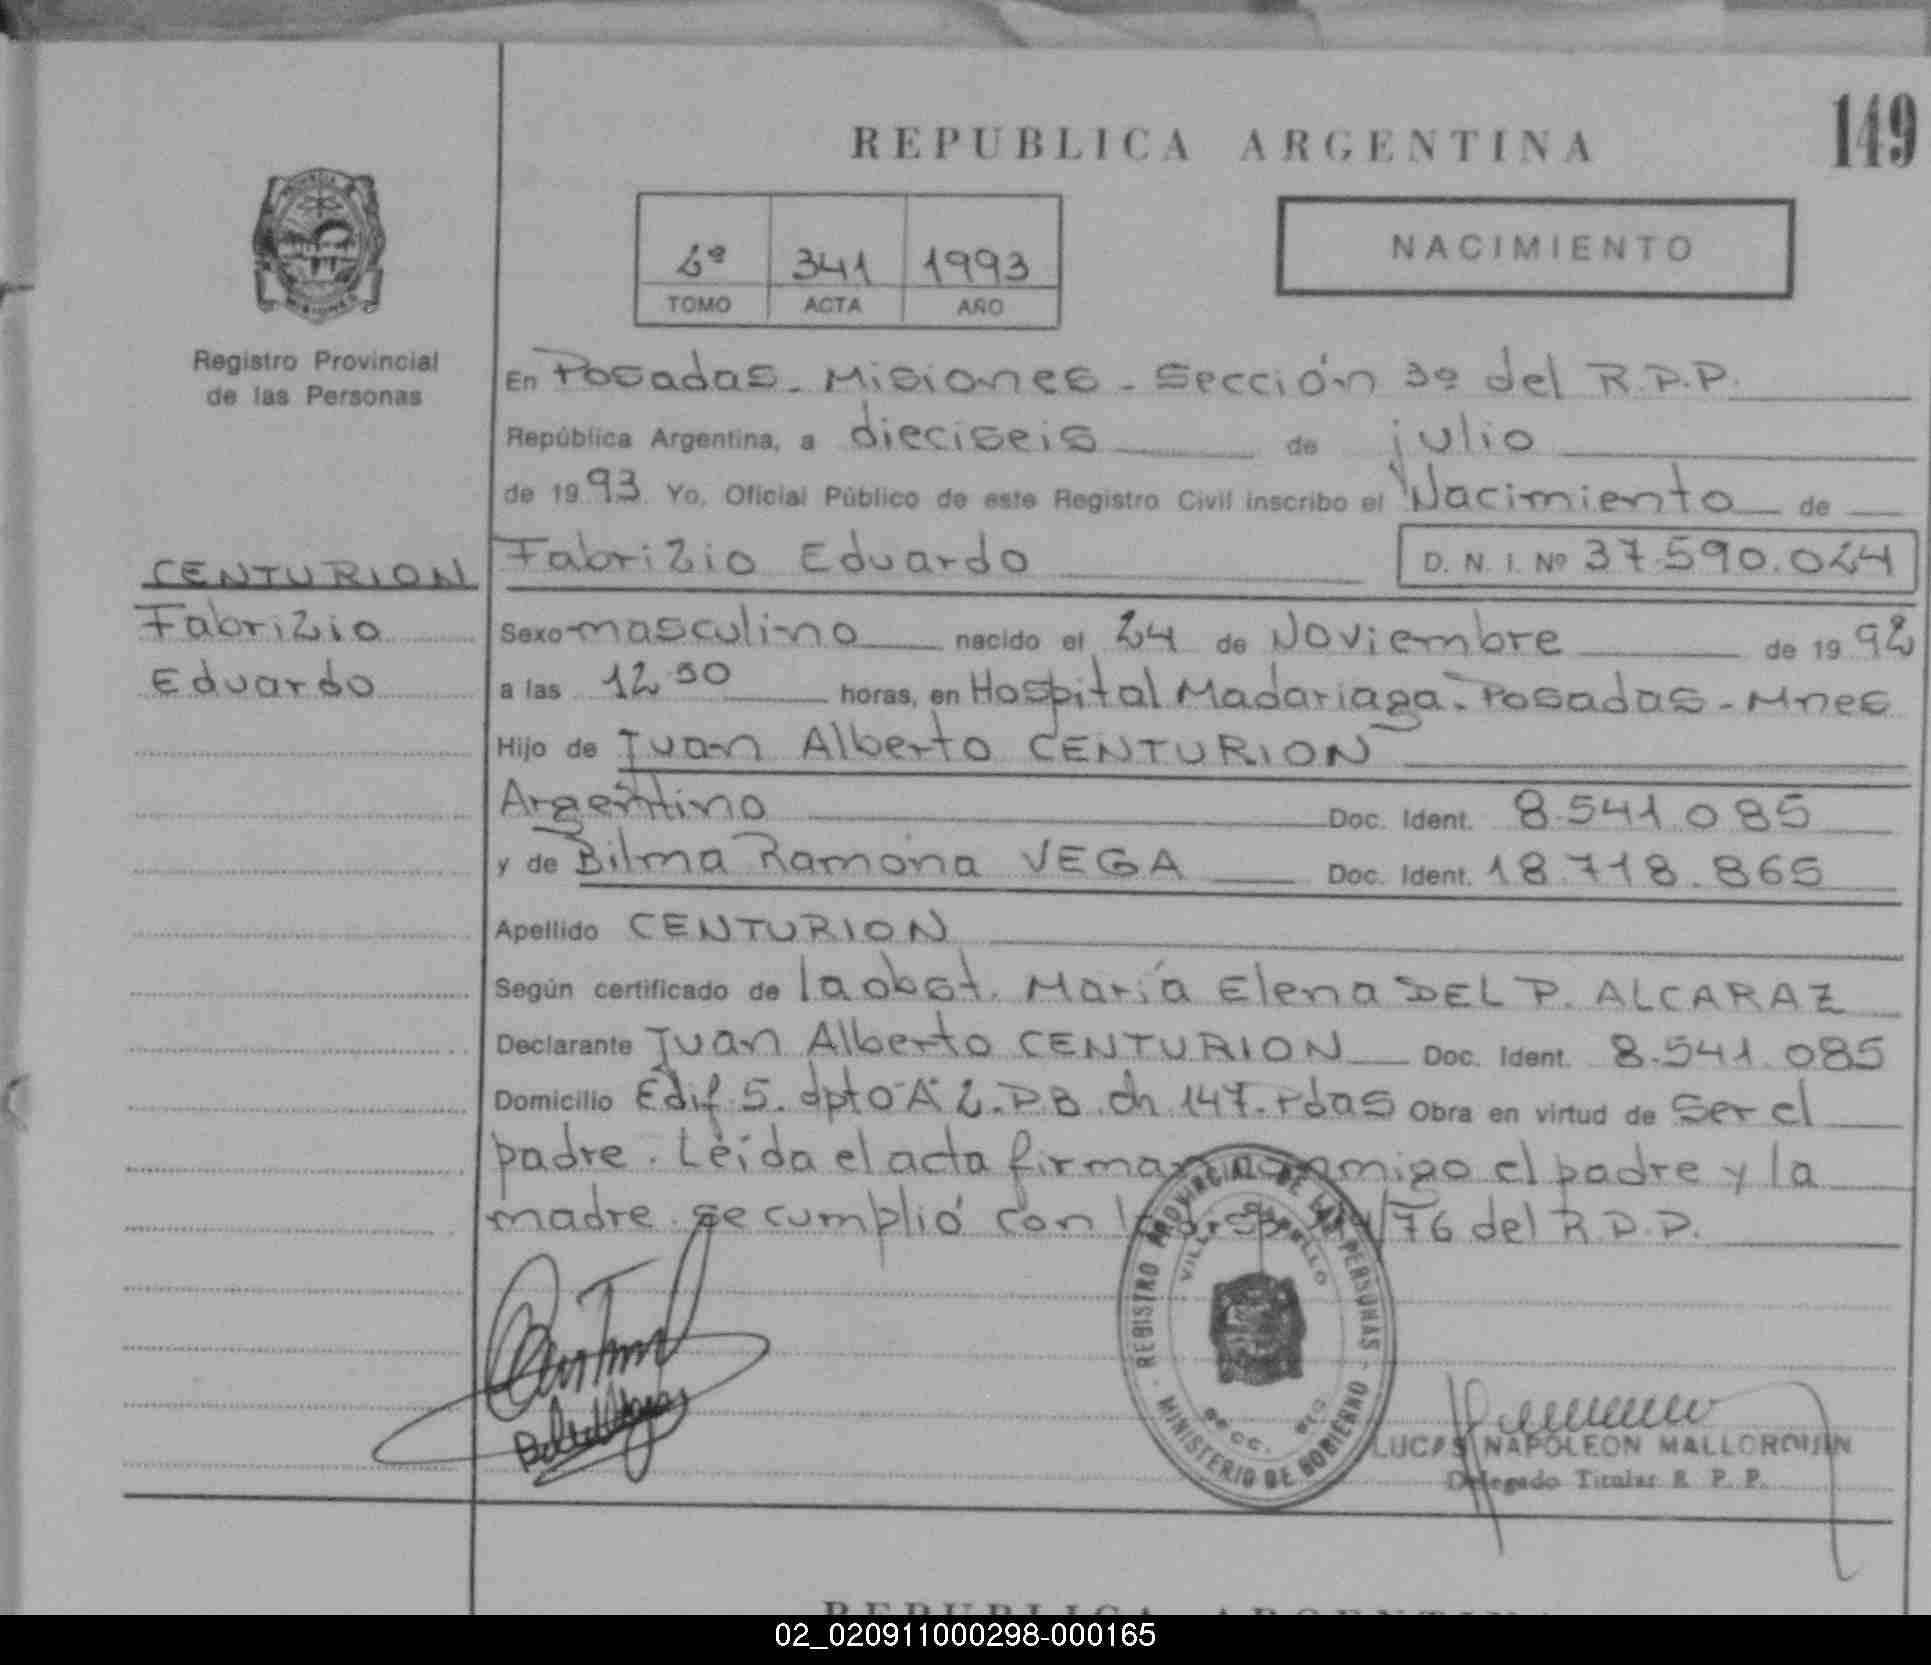 149
REPUBLICA ARGENTINA
2º 341 1993
TOMO ACTA AÑO
NACIMIENTO
Registro Provincial
de las Personas
CENTURION
Fabrizio
Eduardo
En Posadas - Misiones - Sección 3º del R.P.P.
República Argentina, a dieciseis de julio
de 1993 Yo, Oficial Público de este Registro Civil inscribo el Nacimiento de
Fabrizio Eduardo D. N. I. Nº 37.590.024
Sexo masculino nacido el 24 de Noviembre de 1992
a las 12.50 horas, en Hospital Madariaga - Posadas - Mnes
Hijo de Juan Alberto CENTURION
Argentino Doc. Ident. 8.541.085
y de Bilma Ramona VEGA Doc. Ident. 18.718.865
Apellido CENTURION
Según certificado de la obst. María Elena DEL P. ALCARAZ
Declarante Juan Alberto CENTURION Doc. Ident. 8.541.085
Domicilio Edif 5. dpto "A" 2. PB. ch 147. Pdas Obra en virtud de ser el
padre. Leída el acta firman conmigo el padre y la
madre. se cumplió con la /76 del R.P.P.
REGISTRO PROVINCIAL DE LAS PERSONAS
MINISTERIO DE GOBIERNO
VILLA
LUCAS NAPOLEON MALLORQUIN
Delegado Titular R. P. P.
REPUBLICA ARGENTINA
02_020911000298-000165